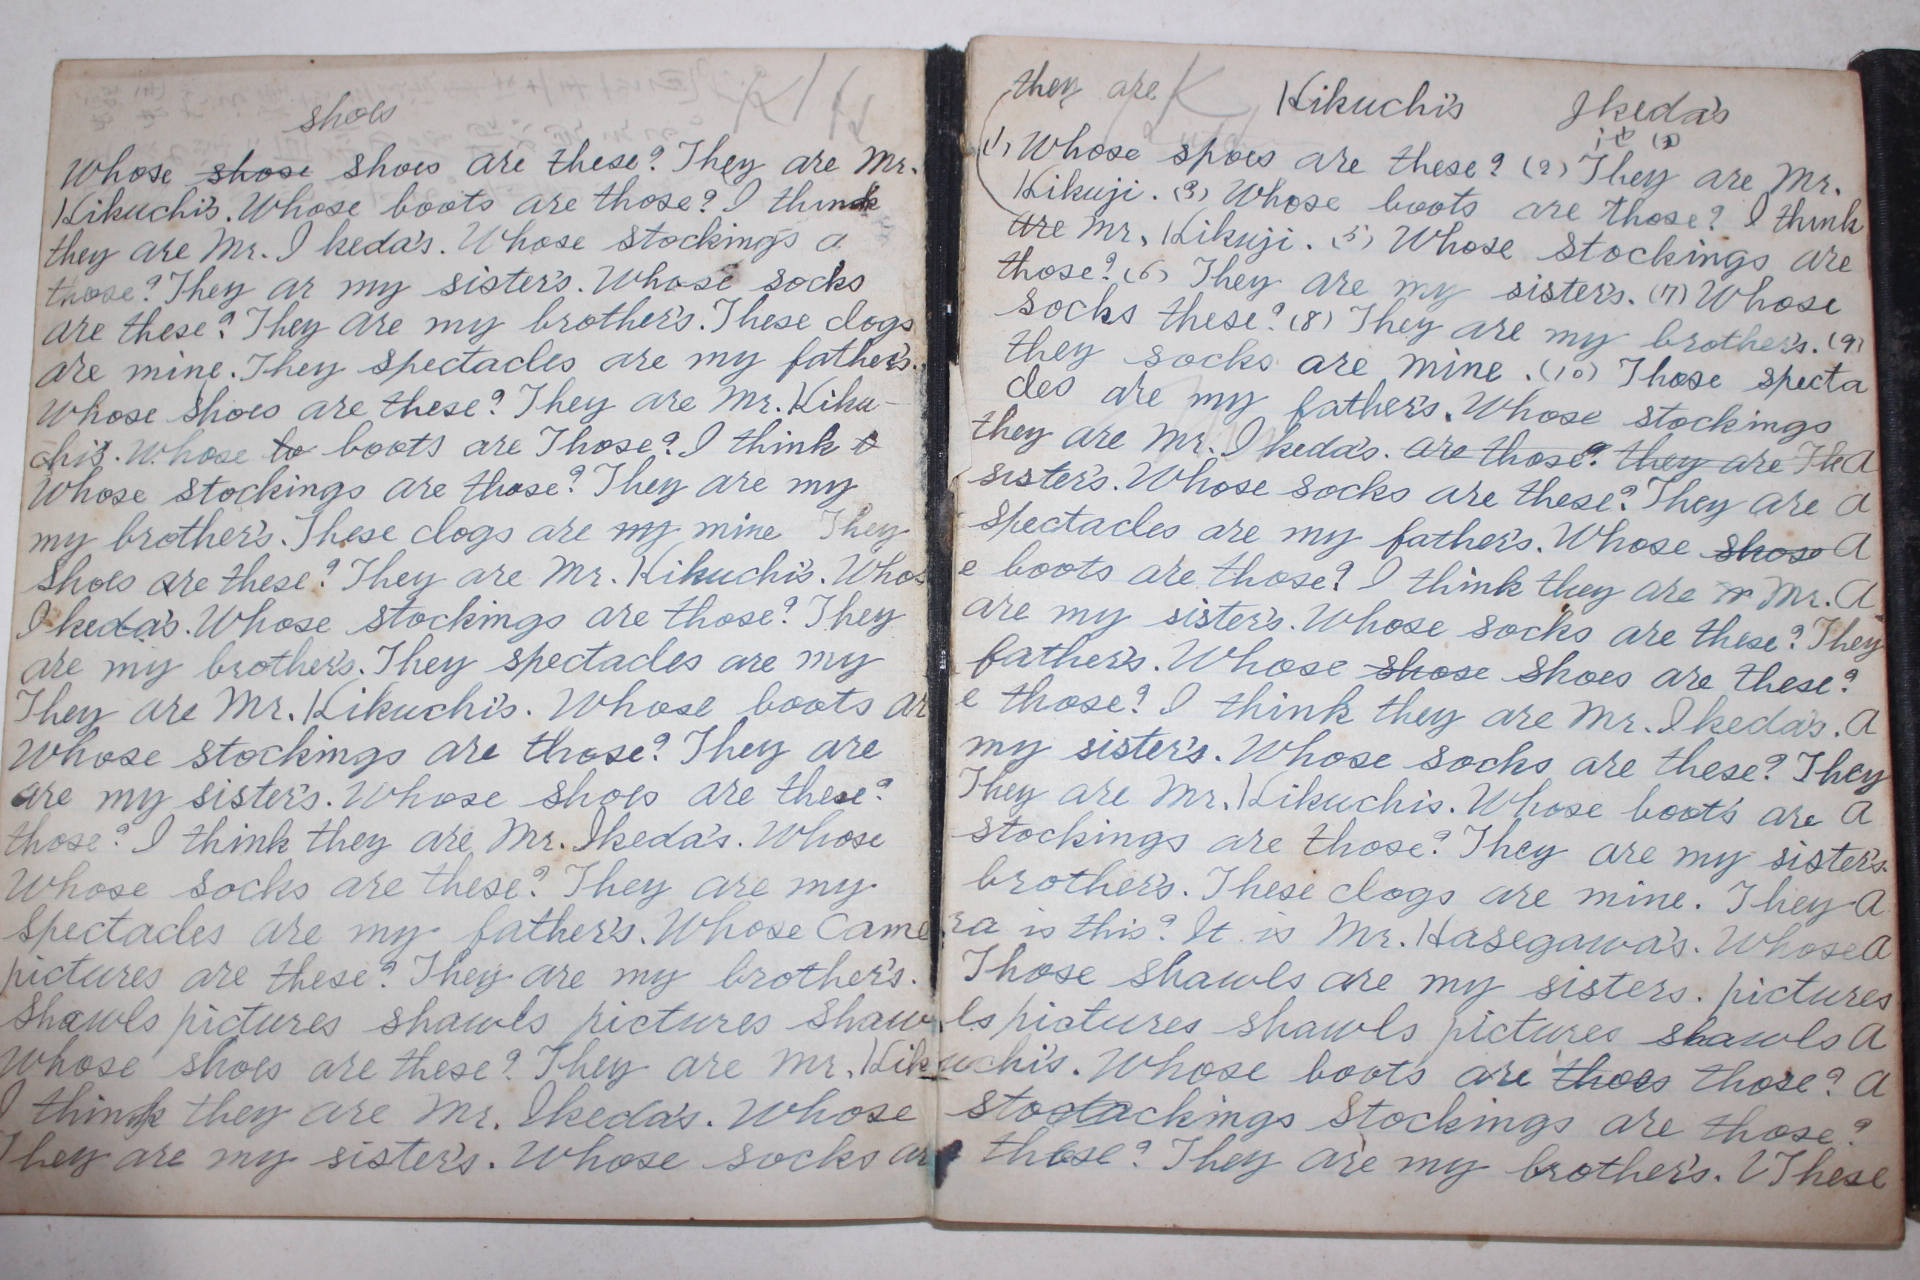 shoes
Whose shose shoes are these? They are Mr.
Kikuchi's. Whose boots are those? I think
they are Mr. Ikeda's. Whose stockings a
those? They ar my sister's. Whose socks
are these? They are my brother's. These clogs
are mine. They spectacles are my father's.
Whose shoes are these? They are Mr. Kiku-
chi's. Whose to boots are Those? I think t
Whose stockings are those? They are my
my brother's. These clogs are my mine They
shoes are these? They are Mr. Kikuchi's. Whos
Ikeda's. Whose stockings are those? They
are my brother's. They spectacles are my
They are Mr. Kikuchi's. Whose boots ar
Whose stockings are those? They are
are my sister's. Whose shoes are these?
those? I think they are Mr. Ikeda's. Whose
Whose socks are these? They are my
spectacles are my father's. Whose Came
pictures are these? They are my brother's.
shawls pictures shawls pictures shaw
Whose shoes are these? They are Mr. Kik
I think they are Mr. Ikeda's. Whose
They are my sister's. Whose socks ar
they are K Kikuchi's Ikeda's
(1) Whose spoes are these? (2) They are Mr.
Kikuji. (3) Whose boots are those? I think
are Mr, Kikuji. (5) Whose stockings are
those? (6) They are my sister's. (7) Whose
socks these? (8) They are my brother's. (9)
they socks are mine. (10) Those specta
cles are my father's. Whose stockings
they are Mr. Ikeda's. are those? they are The a
sister's. Whose socks are these? They are a
spectacles are my father's. Whose shose a
e boots are those? I think they are Mr. a
are my sister's. Whose socks are these? They
father's. Whose shose shoes are these?
e those? I think they are Mr. Ikeda's. a
my sister's. Whose socks are these? They
They are Mr. Kikuchi's. Whose boots are a
stockings are those? They are my sister's.
brother's. These clogs are mine. They a
ra is this? It is Mr. Hasegawa's. Whose a
Those shawls are my sisters. pictures
ls pictures shawls pictures shawls a
uchi's. Whose boots are thoes those? a
stoctackings stockings are those?
those? They are my brother's. These